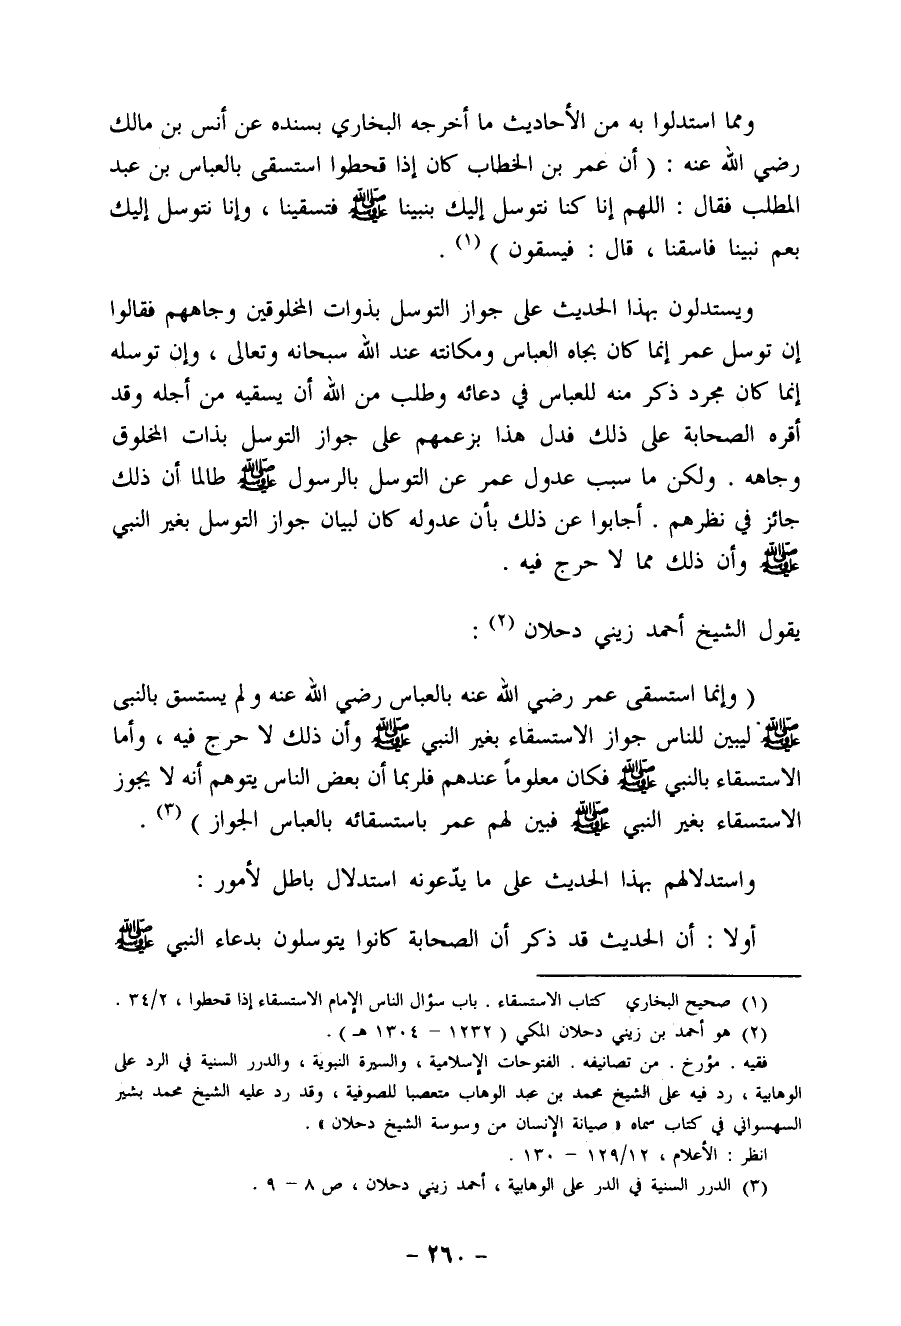 ومما استدلوا به من الأحاديث ما أخرجه البخاري بسنده عن أنس بن مالك
رضي الله عنه : ( أن عمر بن الخطاب كان إذا قحطوا استسقى بالعباس بن عبد
المطلب فقال : اللهم إنا كنا نتوسل إليك بنبينا ﷺ فتسقينا ، وإنا نتوسل إليك
بعم نبينا فاسقنا ، قال : فيسقون ) (١) .
ويستدلون بهذا الحديث على جواز التوسل بذوات المخلوقين وجاههم فقالوا
إن توسل عمر إنما كان بجاه العباس ومكانته عند الله سبحانه وتعالى ، وإن توسله
إنما كان مجرد ذكر منه للعباس في دعائه وطلب من الله أن يسقيه من أجله وقد
أقره الصحابة على ذلك فدل هذا بزعمهم على جواز التوسل بذات المخلوق
وجاهه . ولكن ما سبب عدول عمر عن التوسل بالرسول ﷺ طالما أن ذلك
جائز في نظرهم . أجابوا عن ذلك بأن عدوله كان لبيان جواز التوسل بغير النبي
ﷺ وأن ذلك مما لا حرج فيه .
يقول الشيخ أحمد زيني دحلان (٢) :
( وإنما استسقى عمر رضي الله عنه بالعباس رضي الله عنه ولم يستسق بالنبى
ﷺ ليبين للناس جواز الاستسقاء بغير النبي ﷺ وأن ذلك لا حرج فيه ، وأما
الاستسقاء بالنبي ﷺ فكان معلوماً عندهم فلربما أن بعض الناس يتوهم أنه لا يجوز
الاستسقاء بغير النبي ﷺ فبين لهم عمر باستسقائه بالعباس الجواز ) (٣) .
واستدلالهم بهذا الحديث على ما يدّعونه استدلال باطل لأمور :
أولا : أن الحديث قد ذكر أن الصحابة كانوا يتوسلون بدعاء النبي ﷺ
(١) صحيح البخاري كتاب الاستسقاء . باب سؤال الناس الإمام الاستسقاء إذا قحطوا ، ٣٤/٢ .
(٢) هو أحمد بن زيني دحلان المكي ( ١٢٣٢ – ١٣٠٤ هـ ) .
فقيه . مؤرخ . من تصانيفه . الفتوحات الإسلامية ، والسيرة النبوية ، والدرر السنية في الرد على
الوهابية ، رد فيه على الشيخ محمد بن عبد الوهاب متعصبا للصوفية ، وقد رد عليه الشيخ محمد بشير
السهسواني في كتاب سماه « صيانة الإنسان من وسوسة الشيخ دحلان » .
انظر : الأعلام ، ١٢٩/١٢ – ١٣٠ .
(٣) الدرر السنية في الدر على الوهابية ، أحمد زيني دحلان ، ص ٨ – ٩ .
– ٢٦٠ –